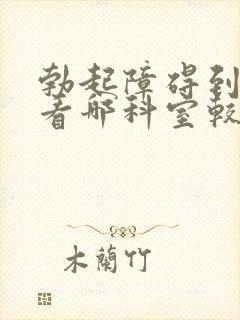 勃起障碍到
看那科室较
木蘭竹